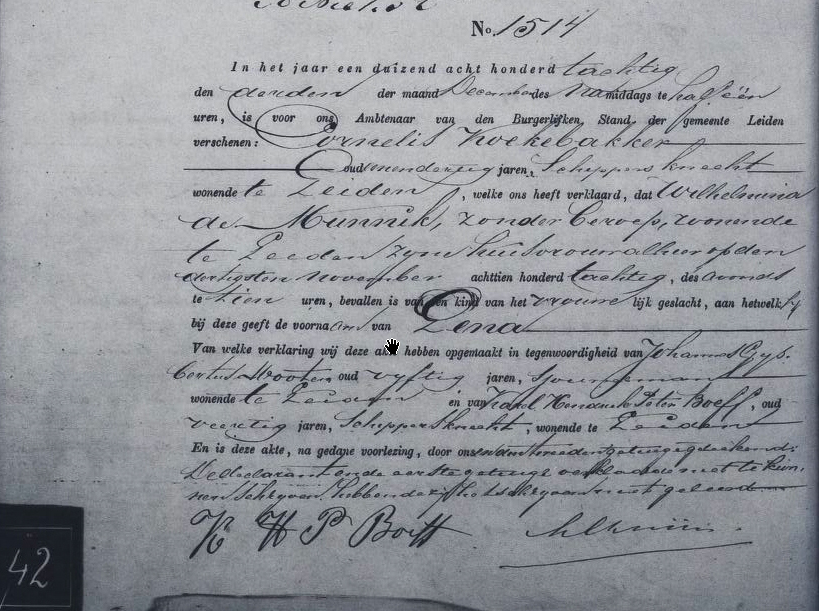 No. 1514
In het jaar een duizend acht honderd tachtig
den derden der maand December des namiddags te half een
uren, is voor ons Ambtenaar van den Burgerlijken Stand der gemeente Leiden
verschenen: Cornelis Koekebakker
oud een en dertig jaren, Schippersknecht
wonende te Leiden, welke ons heeft verklaard, dat Wilhelmina
de Munnik, zonder beroep, wonende
te Leiden zijne huisvrouw alhier op den
dertigsten november achttien honderd tachtig, des avonds
te tien uren, bevallen is van een kind van het vrouwelijk geslacht, aan hetwelk hij
bij deze geeft de voornaam van Lena
Van welke verklaring wij deze akte hebben opgemaakt in tegenwoordigheid van Johannes Gijs-
bertus oud vijftig jaren, sjouwerman
wonende te Leiden en van Karel Hendrik Pieter Boeff, oud
veertig jaren, Schippersknecht, wonende te Leiden
En is deze akte, na gedane voorlezing, door ons en den tweeden getuige geteekend;
De declarant en de eerste getuige verklaarden niet te kun-
nen schrijven, hebbende zij het schrijven niet geleerd
K H P Boeff
42